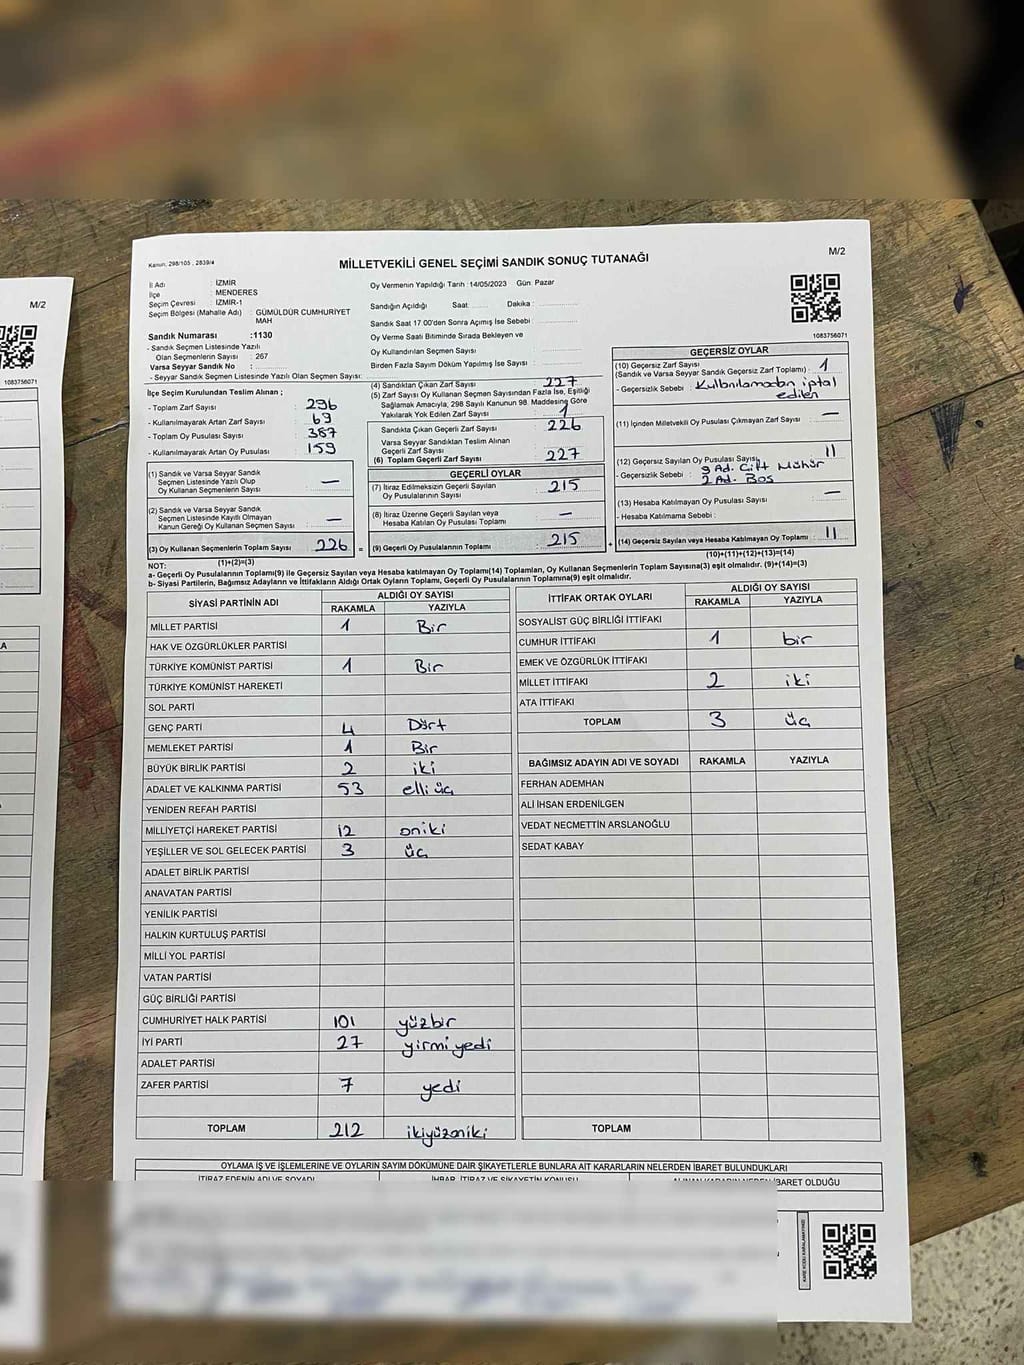 M/2
1083756071
A
Kanun, 298/105 , 2839/4
MİLLETVEKİLİ GENEL SEÇİMİ SANDIK SONUÇ TUTANAĞI
M/2
1083756071
İl Adı : İZMİR
İlçe : MENDERES
Seçim Çevresi : İZMİR-1
Seçim Bölgesi (Mahalle Adı) : GÜMÜLDÜR CUMHURİYET MAH
Sandık Numarası :1130
- Sandık Seçmen Listesinde Yazılı
Olan Seçmenlerin Sayısı : 267
Varsa Seyyar Sandık No :
- Seyyar Sandık Seçmen Listesinde Yazılı Olan Seçmen Sayısı:
Oy Vermenin Yapıldığı Tarih :14/05/2023 Gün: Pazar
Sandığın Açıldığı Saat Dakika :
Sandık Saat 17:00'den Sonra Açımış İse Sebebi :
Oy Verme Saati Bitiminde Sırada Bekleyen ve
Oy Kullandırılan Seçmen Sayısı
Birden Fazla Sayım Döküm Yapılmış İse Sayısı :
İlçe Seçim Kurulundan Teslim Alınan ;
- Toplam Zarf Sayısı : 296
- Kullanılmayarak Artan Zarf Sayısı : 69
- Toplam Oy Pusulası Sayısı : 387
- Kullanılmayarak Artan Oy Pusulası : 159
(1) Sandık ve Varsa Seyyar Sandık
Seçmen Listesinde Yazılı Olup
Oy Kullanan Seçmenlerin Sayısı : —
(2) Sandık ve Varsa Seyyar Sandık
Seçmen Listesinde Kayıtlı Olmayan
Kanun Gereği Oy Kullanan Seçmen Sayısı : —
(3) Oy Kullanan Seçmenlerin Toplam Sayısı 226 =
(1)+(2)=(3)
(4) Sandıktan Çıkan Zarf Sayısı : 227
(5) Zarf Sayısı Oy Kullanan Seçmen Sayısından Fazla İse, Eşitliği
Sağlamak Amacıyla, 298 Sayılı Kanunun 98. Maddesine Göre
Yakılarak Yok Edilen Zarf Sayısı : 1
Sandıkta Çıkan Geçerli Zarf Sayısı : 226
Varsa Seyyar Sandıktan Teslim Alınan
Geçerli Zarf Sayısı :
(6) Toplam Geçerli Zarf Sayısı : 227
GEÇERLİ OYLAR
(7) İtiraz Edilmeksizin Geçerli Sayılan
Oy Pusulalarının Sayısı : 215
(8) İtiraz Üzerine Geçerli Sayılan veya
Hesaba Katılan Oy Pusulası Toplamı : —
(9) Geçerli Oy Pusulalarının Toplamı : 215 +
GEÇERSİZ OYLAR
(10) Geçersiz Zarf Sayısı : 1
(Sandık ve Varsa Seyyar Sandık Geçersiz Zarf Toplamı)
- Geçersizlik Sebebi : Kullanılamadan iptal
edilen
(11) İçinden Milletvekili Oy Pusulası Çıkmayan Zarf Sayısı : —
(12) Geçersiz Sayılan Oy Pusulası Sayısı : 11
- Geçersizlik Sebebi : 9 Ad. Çift Mühür
2 Ad. Boş
(13) Hesaba Katılmayan Oy Pusulası Sayısı : —
- Hesaba Katılmama Sebebi :
(14) Geçersiz Sayılan veya Hesaba Katılmayan Oy Toplamı : 11
(10)+(11)+(12)+(13)=(14)
NOT:
a- Geçerli Oy Pusulalarının Toplamı(9) ile Geçersiz Sayılan veya Hesaba katılmayan Oy Toplamı(14) Toplamları, Oy Kullanan Seçmenlerin Toplam Sayısına(3) eşit olmalıdır. (9)+(14)=(3)
b- Siyasi Partilerin, Bağımsız Adayların ve İttifakların Aldığı Ortak Oyların Toplamı, Geçerli Oy Pusulalarının Toplamına(9) eşit olmalıdır.
SİYASİ PARTİNİN ADI ALDIĞI OY SAYISI
RAKAMLA YAZIYLA
MİLLET PARTİSİ 1 Bir
HAK VE ÖZGÜRLÜKLER PARTİSİ
TÜRKİYE KOMÜNİST PARTİSİ 1 Bir
TÜRKİYE KOMÜNİST HAREKETİ
SOL PARTİ
GENÇ PARTİ 4 Dört
MEMLEKET PARTİSİ 1 Bir
BÜYÜK BİRLİK PARTİSİ 2 iki
ADALET VE KALKINMA PARTİSİ 53 elli üç
YENİDEN REFAH PARTİSİ
MİLLİYETÇİ HAREKET PARTİSİ 12 oniki
YEŞİLLER VE SOL GELECEK PARTİSİ 3 üç
ADALET BİRLİK PARTİSİ
ANAVATAN PARTİSİ
YENİLİK PARTİSİ
HALKIN KURTULUŞ PARTİSİ
MİLLİ YOL PARTİSİ
VATAN PARTİSİ
GÜÇ BİRLİĞİ PARTİSİ
CUMHURİYET HALK PARTİSİ 101 yüzbir
İYİ PARTİ 27 yirmi yedi
ADALET PARTİSİ
ZAFER PARTİSİ 7 yedi
TOPLAM 212 ikiyüzoniki
İTTİFAK ORTAK OYLARI ALDIĞI OY SAYISI
RAKAMLA YAZIYLA
SOSYALİST GÜÇ BİRLİĞİ İTTİFAKI
CUMHUR İTTİFAKI 1 bir
EMEK VE ÖZGÜRLÜK İTTİFAKI
MİLLET İTTİFAKI 2 iki
ATA İTTİFAKI
TOPLAM 3 üç
BAĞIMSIZ ADAYIN ADI VE SOYADI RAKAMLA YAZIYLA
FERHAN ADEMHAN
ALİ İHSAN ERDENİLGEN
VEDAT NECMETTİN ARSLANOĞLU
SEDAT KABAY
TOPLAM
OYLAMA İŞ VE İŞLEMLERİNE VE OYLARIN SAYIM DÖKÜMÜNE DAİR ŞİKAYETLERLE BUNLARA AİT KARARLARIN NELERDEN İBARET BULUNDUKLARI
İTİRAZ EDENİN ADI VE SOYADI İHBAR, İTİRAZ VE ŞİKAYETİN KONUSU ALINAN KARARIN NEDEN İBARET OLDUĞU
KARE KODU KARALAMAYINIZ!